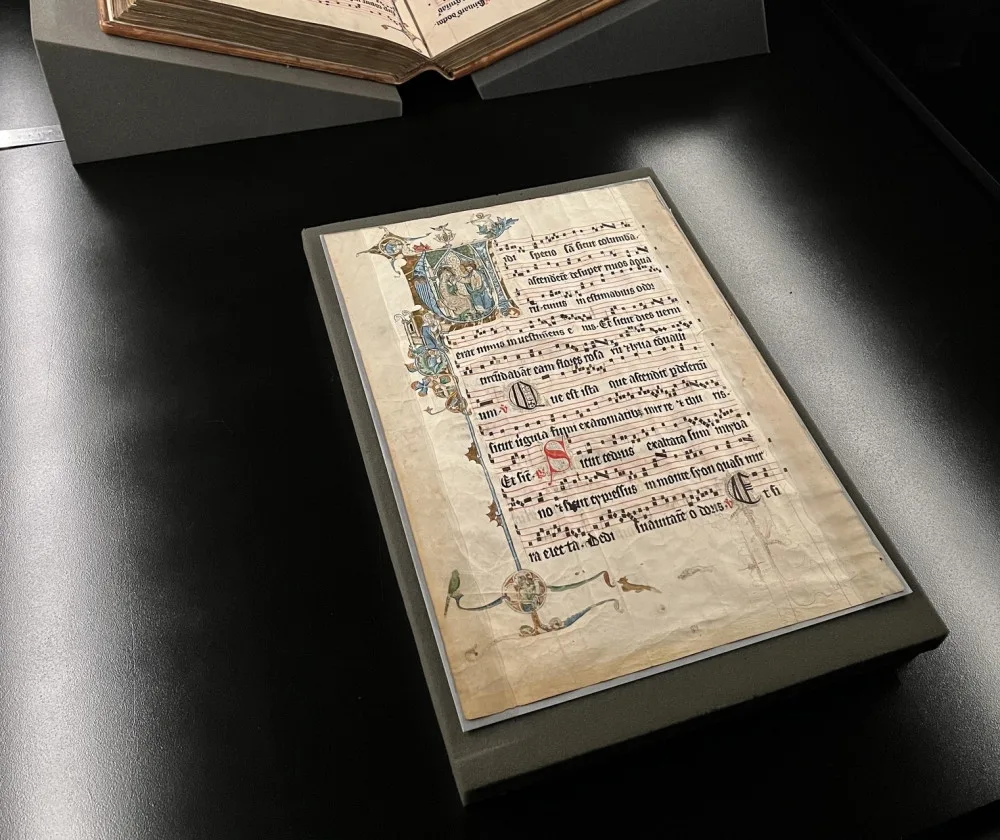 idi speciosā sicut columba.
ascendētē desuper riuos aqua
rū cuius inestimabilis odoꝛ
erat nimis in uestimētis e ius. Et sicut dies uerni
circūdabāt eam flores rosa rū ⁊ lilia cōualli
um. v Que est ista que ascendit ꝑ desertū
sicut uirgula fumi ex aromatibꝫ mirre ⁊ thu ris.
Et sic. Sicut cedrus exaltata sum in liba
no ⁊ sicut cypressus in monte syon quasi mir
ra electa. Dedi suauitatē odoris. v Et si